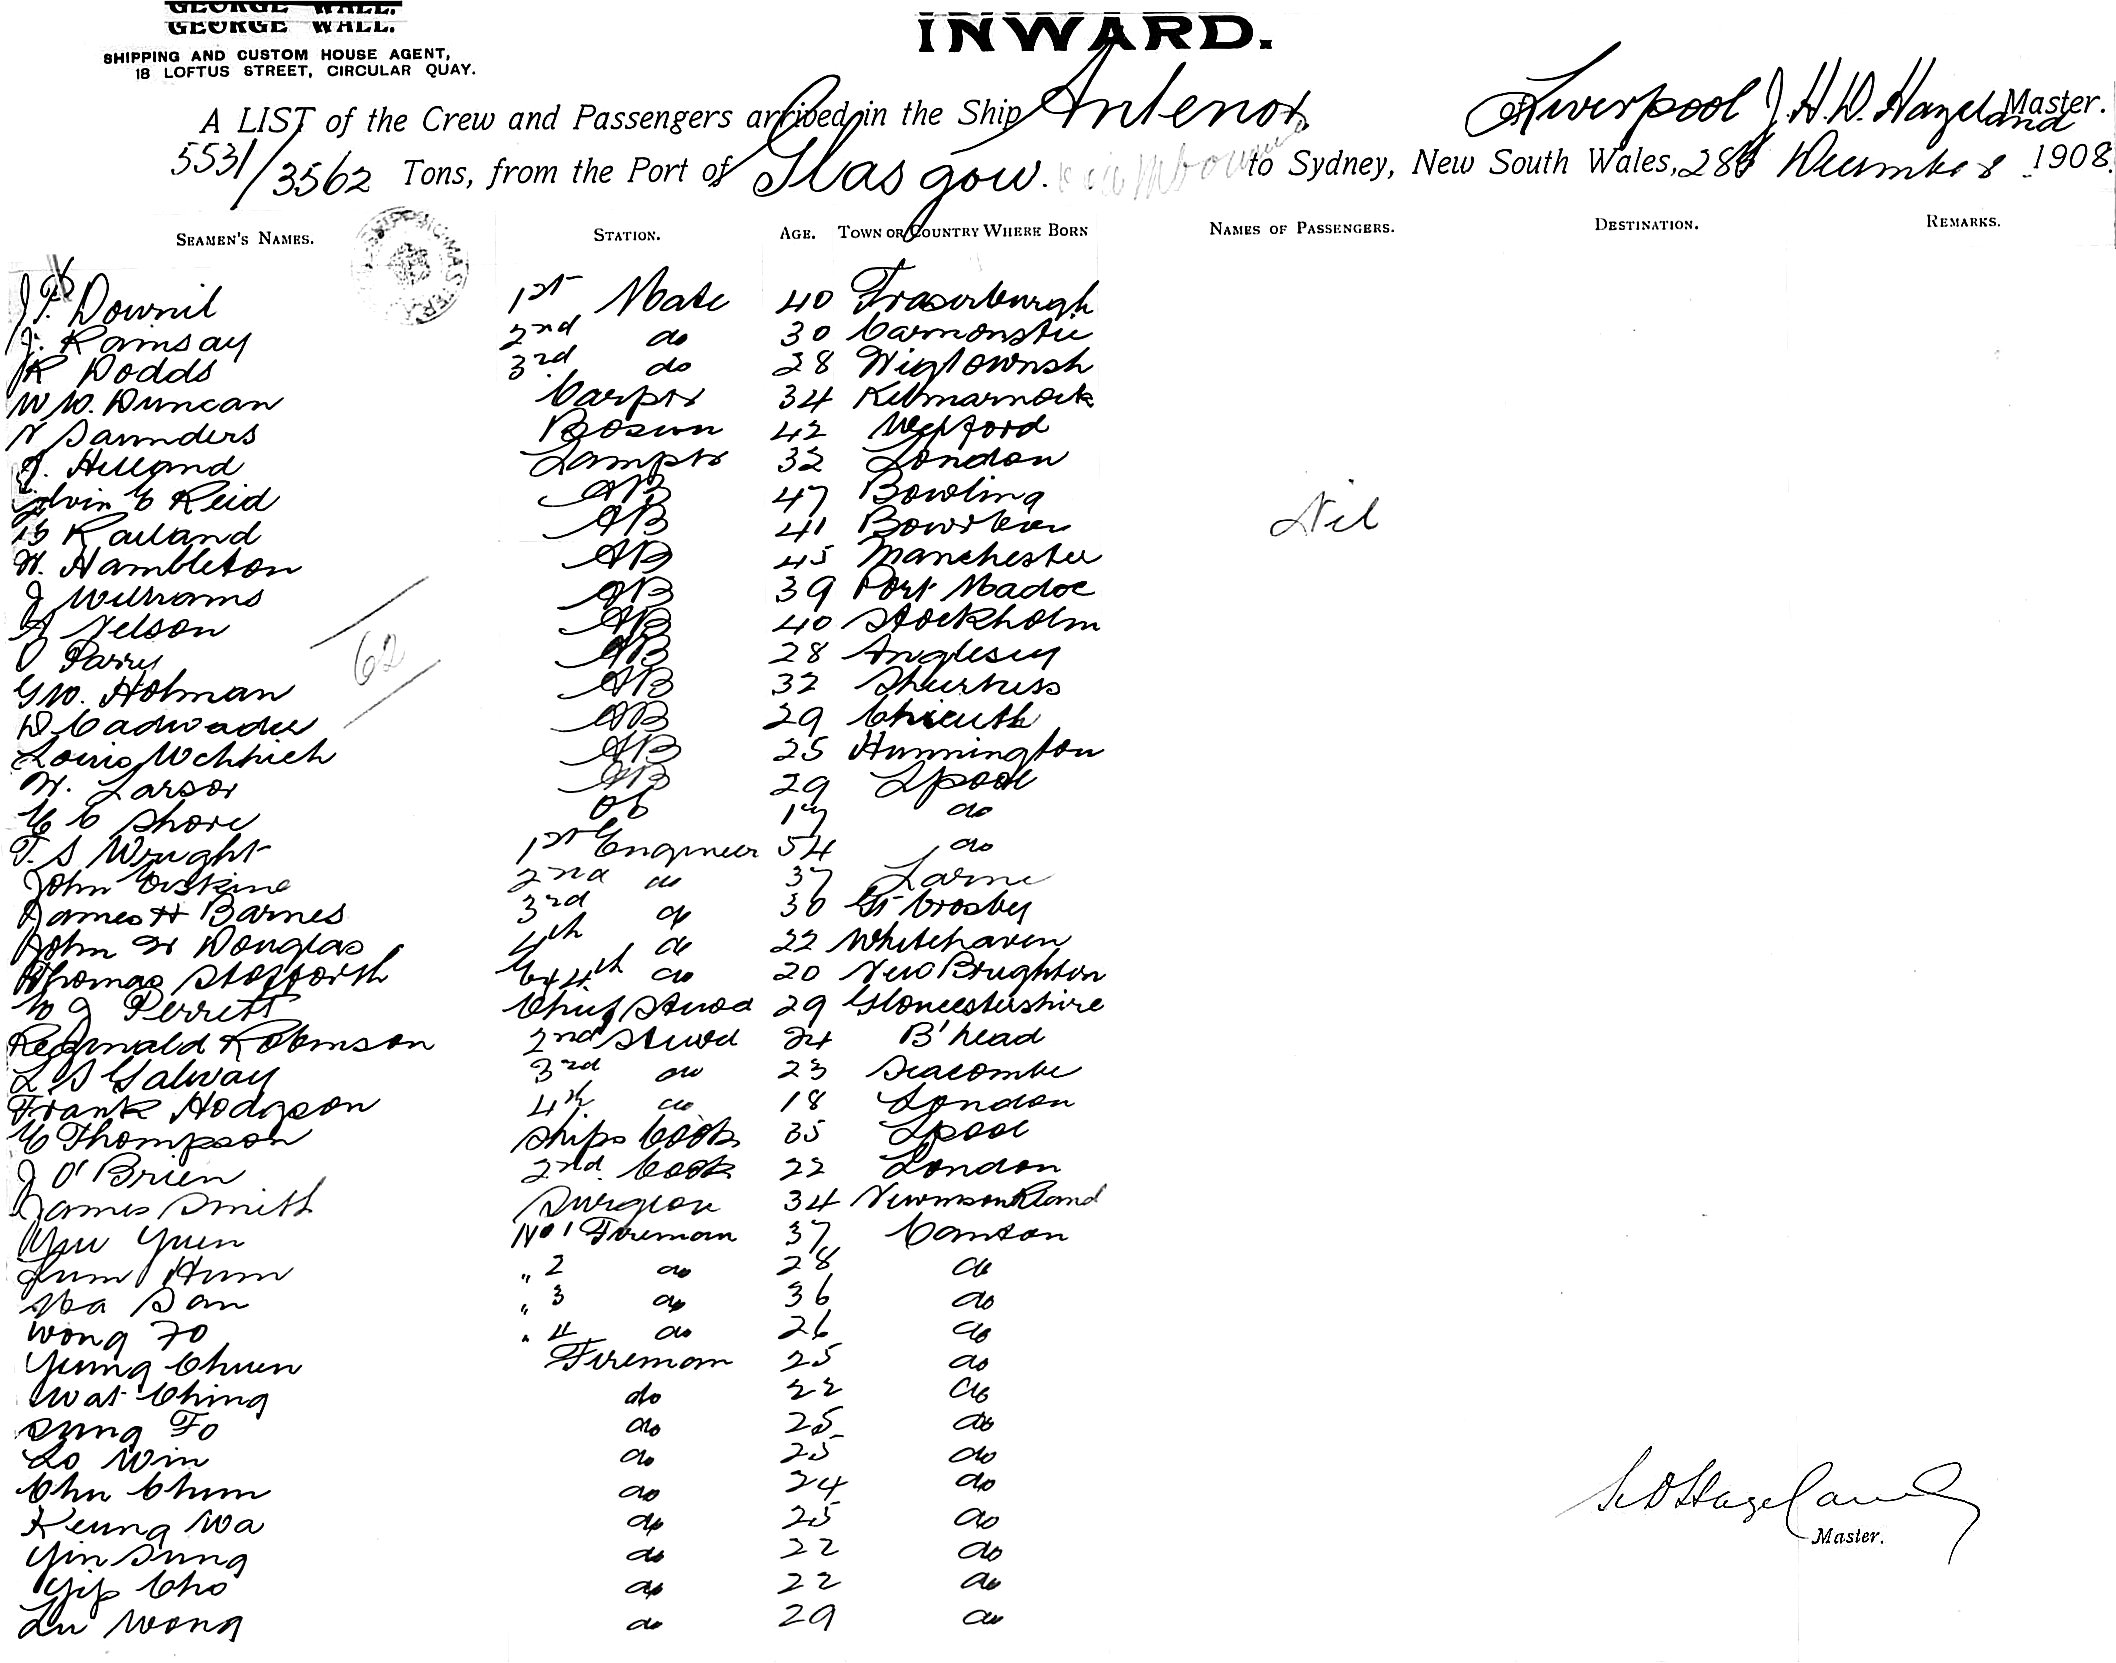 GEORGE WALL.
GEORGE WALL.
SHIPPING AND CUSTOM HOUSE AGENT,
18 LOFTUS STREET, CIRCULAR QUAY.
INWARD.
A LIST of the Crew and Passengers arrived in the Ship Antenor. of Liverpool J. H. D. Hazeland Master.
5531/3562 Tons, from the Port of Glasgow. to Sydney, New South Wales, 28th December 1908.
SEAMEN'S NAMES. STATION. AGE. TOWN OR COUNTRY WHERE BORN NAMES OF PASSENGERS. DESTINATION. REMARKS.
Downie 1st Mate 40 Fraserburgh
J. Ramsay 2nd do 30 Carmonstie
R Dodds 3rd do 28 Wigtownsh
W W. Duncan Carptr 34 Kilmarnock
N Saunders Bosun 42 Wexford
Hilland Lamptr 32 London
Edvin E Reid AB 47 Bowling
Railand AB 41 
W. Hambleton AB 45 Manchester
J Williams AB 39 Port Madoc
A Nelson AB 40 Stockholm
O Parry AB 28 Anglesey
G W. Holman AB 32 Sheerness
D Cadwader AB 29 
Louis AB 25 Hunnington
W. Larsor AB 29 Lpool
C C Shore OS 17 do
T. S Wright 1st Engineer 54 do
John Erskine 2nd do 37 Larne
James H Barnes 3rd do 30 Gt Crosby
John W Douglas 4th do 22 Whitehaven
Thomas Stopforth Ex 4th do 20 New Brughton
W J Perrett Chief Stwd 29 Gloucestershire
Reginald Robinson 2nd Stwd 24 B'head
L S Galway 3rd do 23 Seacombe
Frank Hodgson 4th do 18 London
C Thompson Ships Cook 35 Lpool
J O'Brien 2nd Cook 22 London
James Smith Surgeon 34
Yuen No 1 Fireman 37 Canton
Lum Hum " 2 do 28 do
Wa San " 3 do 36 do
Wong Fo " 4 do 26 do
Yung Chuen Fireman 25 do
Wat Ching do 22 do
Sung Fo do 25 do
Lo Win do 25 do
Chu Chum do 24 do
Keung Wa do 25 do
Yin Sung do 22 do
Yip Cho do 22 do
Lu Wong do 29 do
Nil
62
Hazeland
Master.